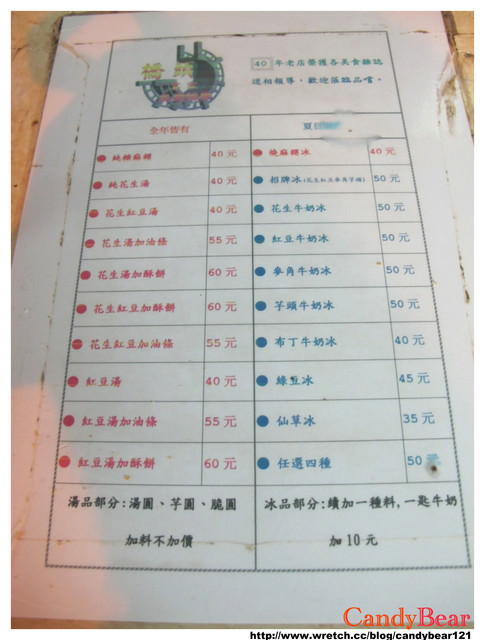 橋頭
40 年老店榮獲各美食雜誌
逕相報導，歡迎蒞臨品嚐。
全年皆有
夏
純糖麻糬 40 元
燒麻糬冰 40 元
純花生湯 40 元
招牌冰(花生紅豆麥角芋頭) 50 元
花生紅豆湯 40 元
花生牛奶冰 50 元
花生湯加油條 55 元
紅豆牛奶冰 50 元
花生湯加酥餅 60 元
麥角牛奶冰 50 元
花生紅豆加酥餅 60 元
芋頭牛奶冰 50 元
花生紅豆加油條 55 元
布丁牛奶冰 40 元
紅豆湯 40 元
綠豆冰 45 元
紅豆湯加油條 55 元
仙草冰 35 元
紅豆湯加酥餅 60 元
任選四種 50 元
湯品部分:湯圓、芋圓、脆圓
加料不加價
冰品部分:續加一種料,一匙牛奶
加 10 元
CandyBear
http://www.wretch.cc/blog/candybear121